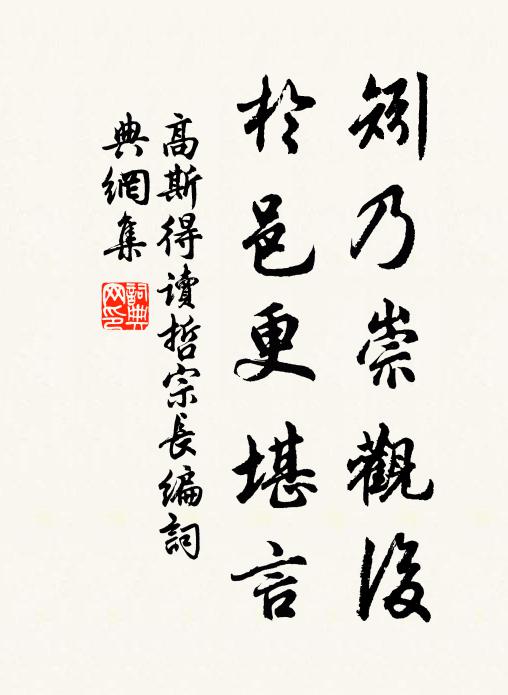 矧乃崇觀後
於邑更堪言
高斯得讀哲宗長編詞
典網集
詞典
网印